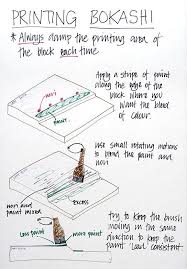 PRINTING BOKASHI
* Always damp the printing area of
the block each time
Apply a stripe of paint
along the edge of the
block where you
want the blend
of colour.
nori
paint
use small rotating motions
to blend the paint and
nori
nori and
paint mixed
EXCESS
try to keep the brush
moving in the same
direction to keep the
paint 'load' consistent.
less paint
more paint